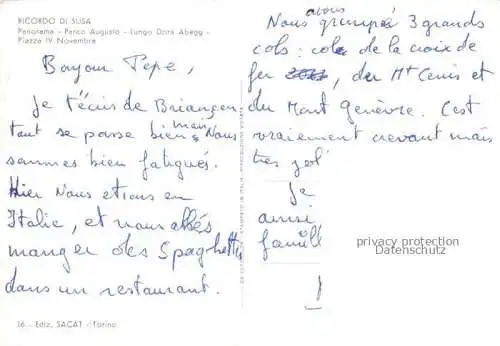 RICORDO DI SUSA
Panorama - Parco Augusto - Lungo Dora Abegg -
Piazza IV Novembre
Bonjour Pepe,
Je t'écris de Briançon
tout se passe bien mais Nous
sommes bien fatigués.
Hier Nous etions en
Italie, et nous
manger des Spaghettis
dans un restaurant.
16 - Ediz. SACAT - Torino
Nous avons grimpé 3 grands
cols: cols de la croix de
fer, du Mt Cenis et
du Mont Genèvre. C'est
vraiement crevant mais
très jol
Je
ainsi
famill
privacy protection
Datenschutz